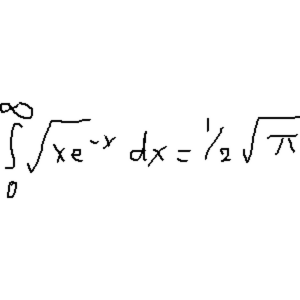 ∫₀^∞ √(xe⁻ˣ) dx = 1/2 √π